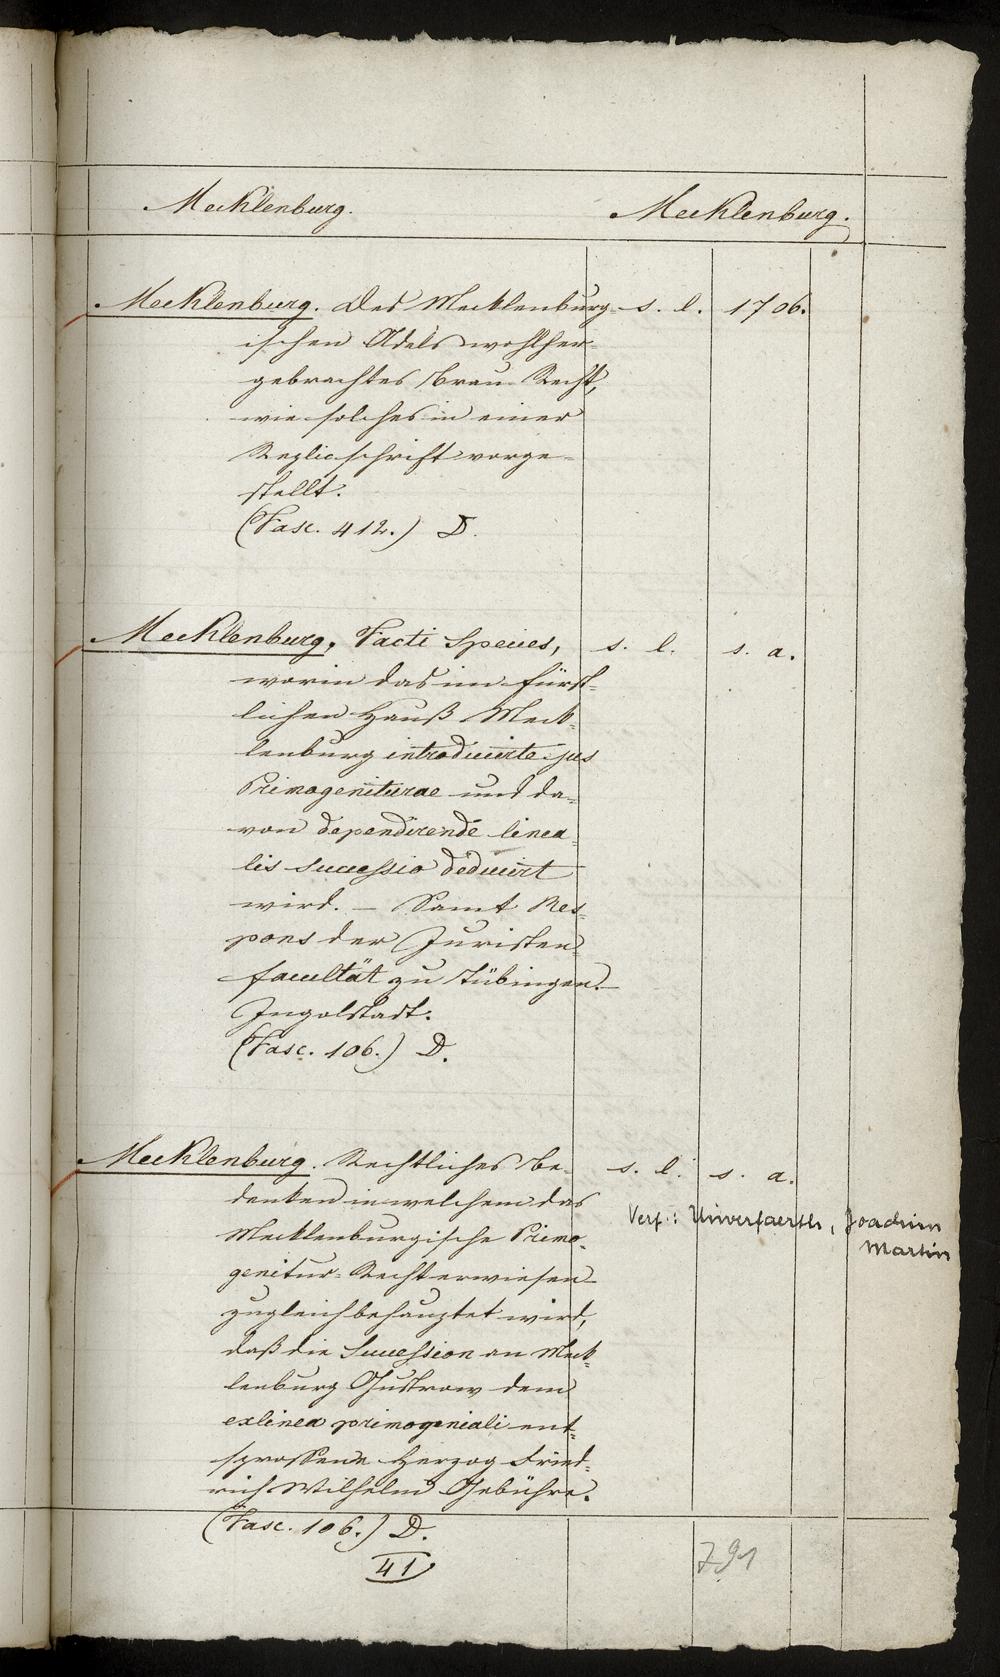 Mecklenburg. Mecklenburg.
Mecklenburg. Des Mecklenburg- s. l. 1706.
ischen Adels wohlher-
gebrachtes Brau-Recht,
wie solches in einer
Replic schrift vorge-
stellt.
(Fasc. 412.) D.
Mecklenburg. Facti Species, s. l. s. a.
worin das im fürst-
lichen Hauß Meck-
lenburg introducirte jus
Primogeniturae und da-
von dependirende linea-
lis successio deducirt
wird. – Samt Res-
pons der Juristen-
facultät zu Tübingen. –
Ingolstadt.
(Fasc. 106.) D.
Mecklenburg. Rechtliches Be- s. l. s. a.
denken in welchem das
Verf.: Unverfaerth, Joachim
Martin
Mecklenburgische Primo-
genitur-Recht erwiesen
zugleich behauptet wird,
daß die Succession an Meck-
lenburg Gustrow dem
ex linea primogeniali ent-
sprossene Herzog Fried-
rich Wilhelm Gebühre.
(Fasc. 106.) D.
41
791